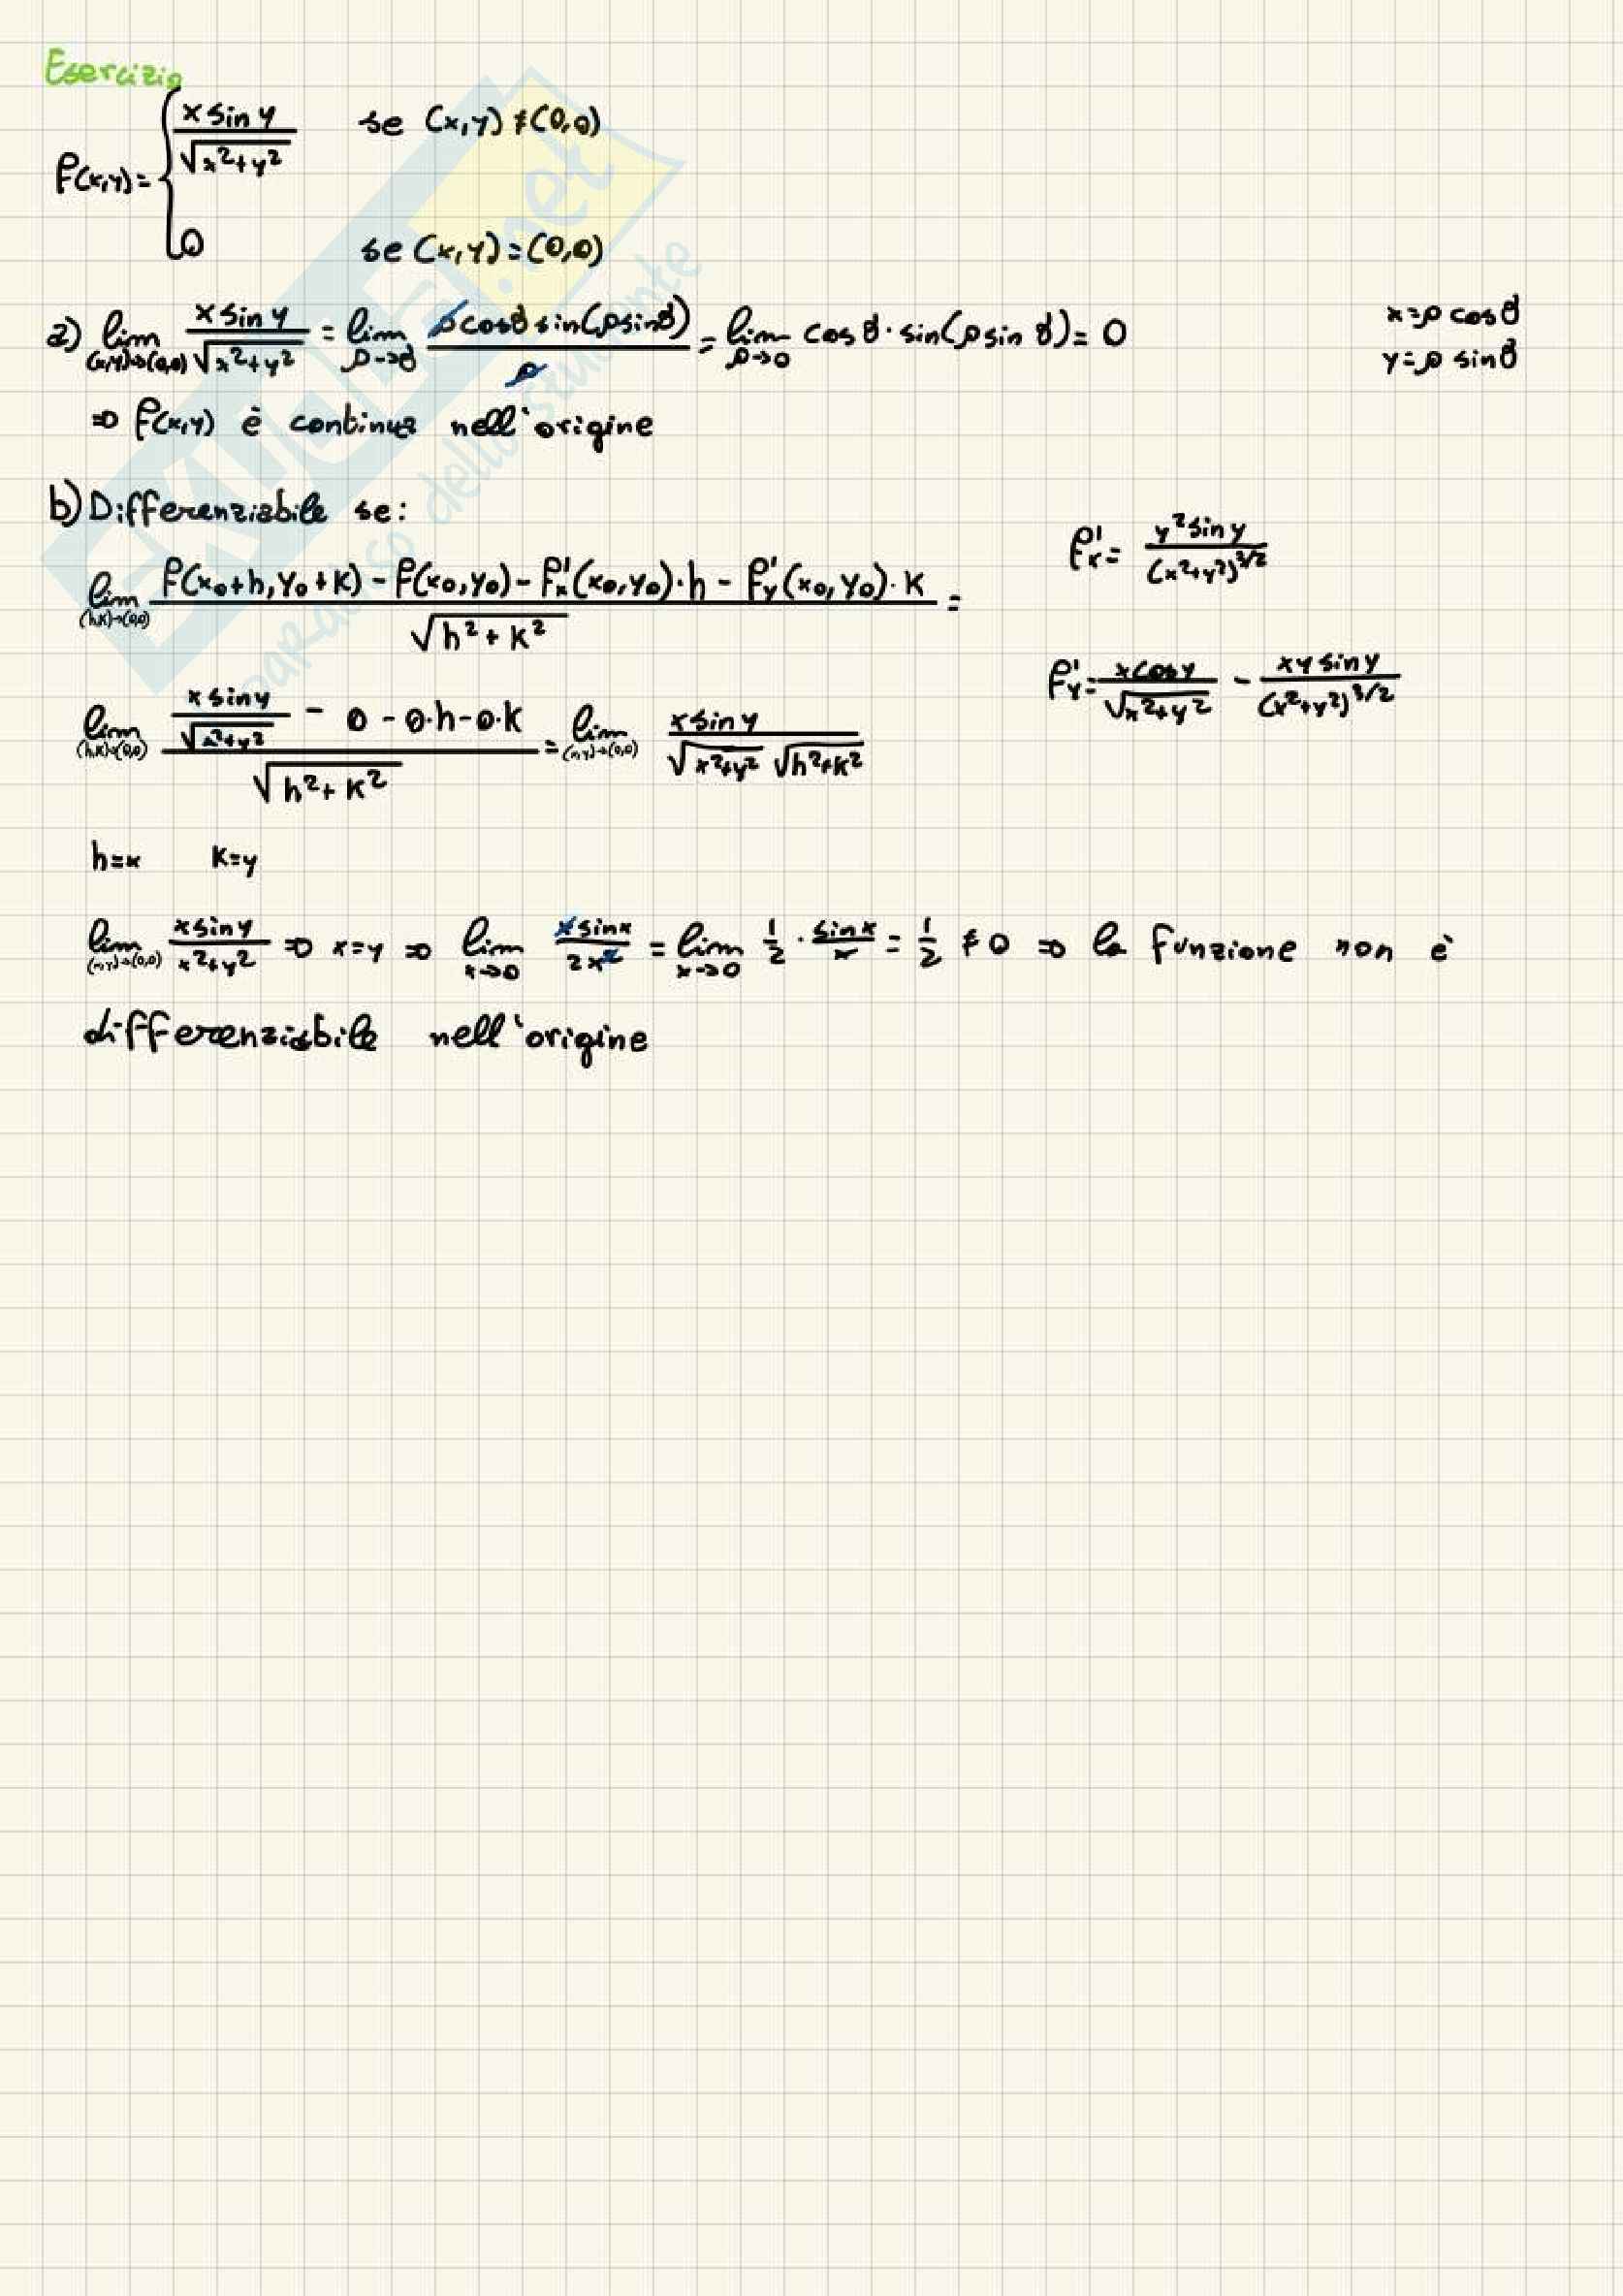 Esercizio
f(x,y) = { x sin y / √(x²+y²) se (x,y) ≠ (0,0)
0 se (x,y) = (0,0)
a) lim (x,y)→(0,0) x sin y / √(x²+y²) = lim ρ→0 ρ cos θ sin(ρ sin θ) / ρ = lim ρ→0 cos θ · sin(ρ sin θ) = 0
x = ρ cos θ
y = ρ sin θ
⇒ f(x,y) è continua nell'origine
b) Differenziabile se:
lim (h,k)→(0,0) f(x₀+h, y₀+k) - f(x₀,y₀) - f'x(x₀,y₀)·h - f'y(x₀,y₀)·k / √(h²+k²) =
f'x = y² sin y / (x²+y²)^3/2
f'y = x cos y / √(x²+y²) - xy sin y / (x²+y²)^3/2
lim (h,k)→(0,0) x sin y / √(x²+y²) - 0 - 0·h - 0·k / √(h²+k²) = lim (x,y)→(0,0) x sin y / √(x²+y²) √(h²+k²)
h=x k=y
lim (x,y)→(0,0) x sin y / x²+y² ⇒ x=y ⇒ lim x→0 x sin x / 2x² = lim x→0 1/2 · sin x / x = 1/2 ≠ 0 ⇒ la funzione non è
differenziabile nell'origine
SKUOLA.net
paradiso dello studente